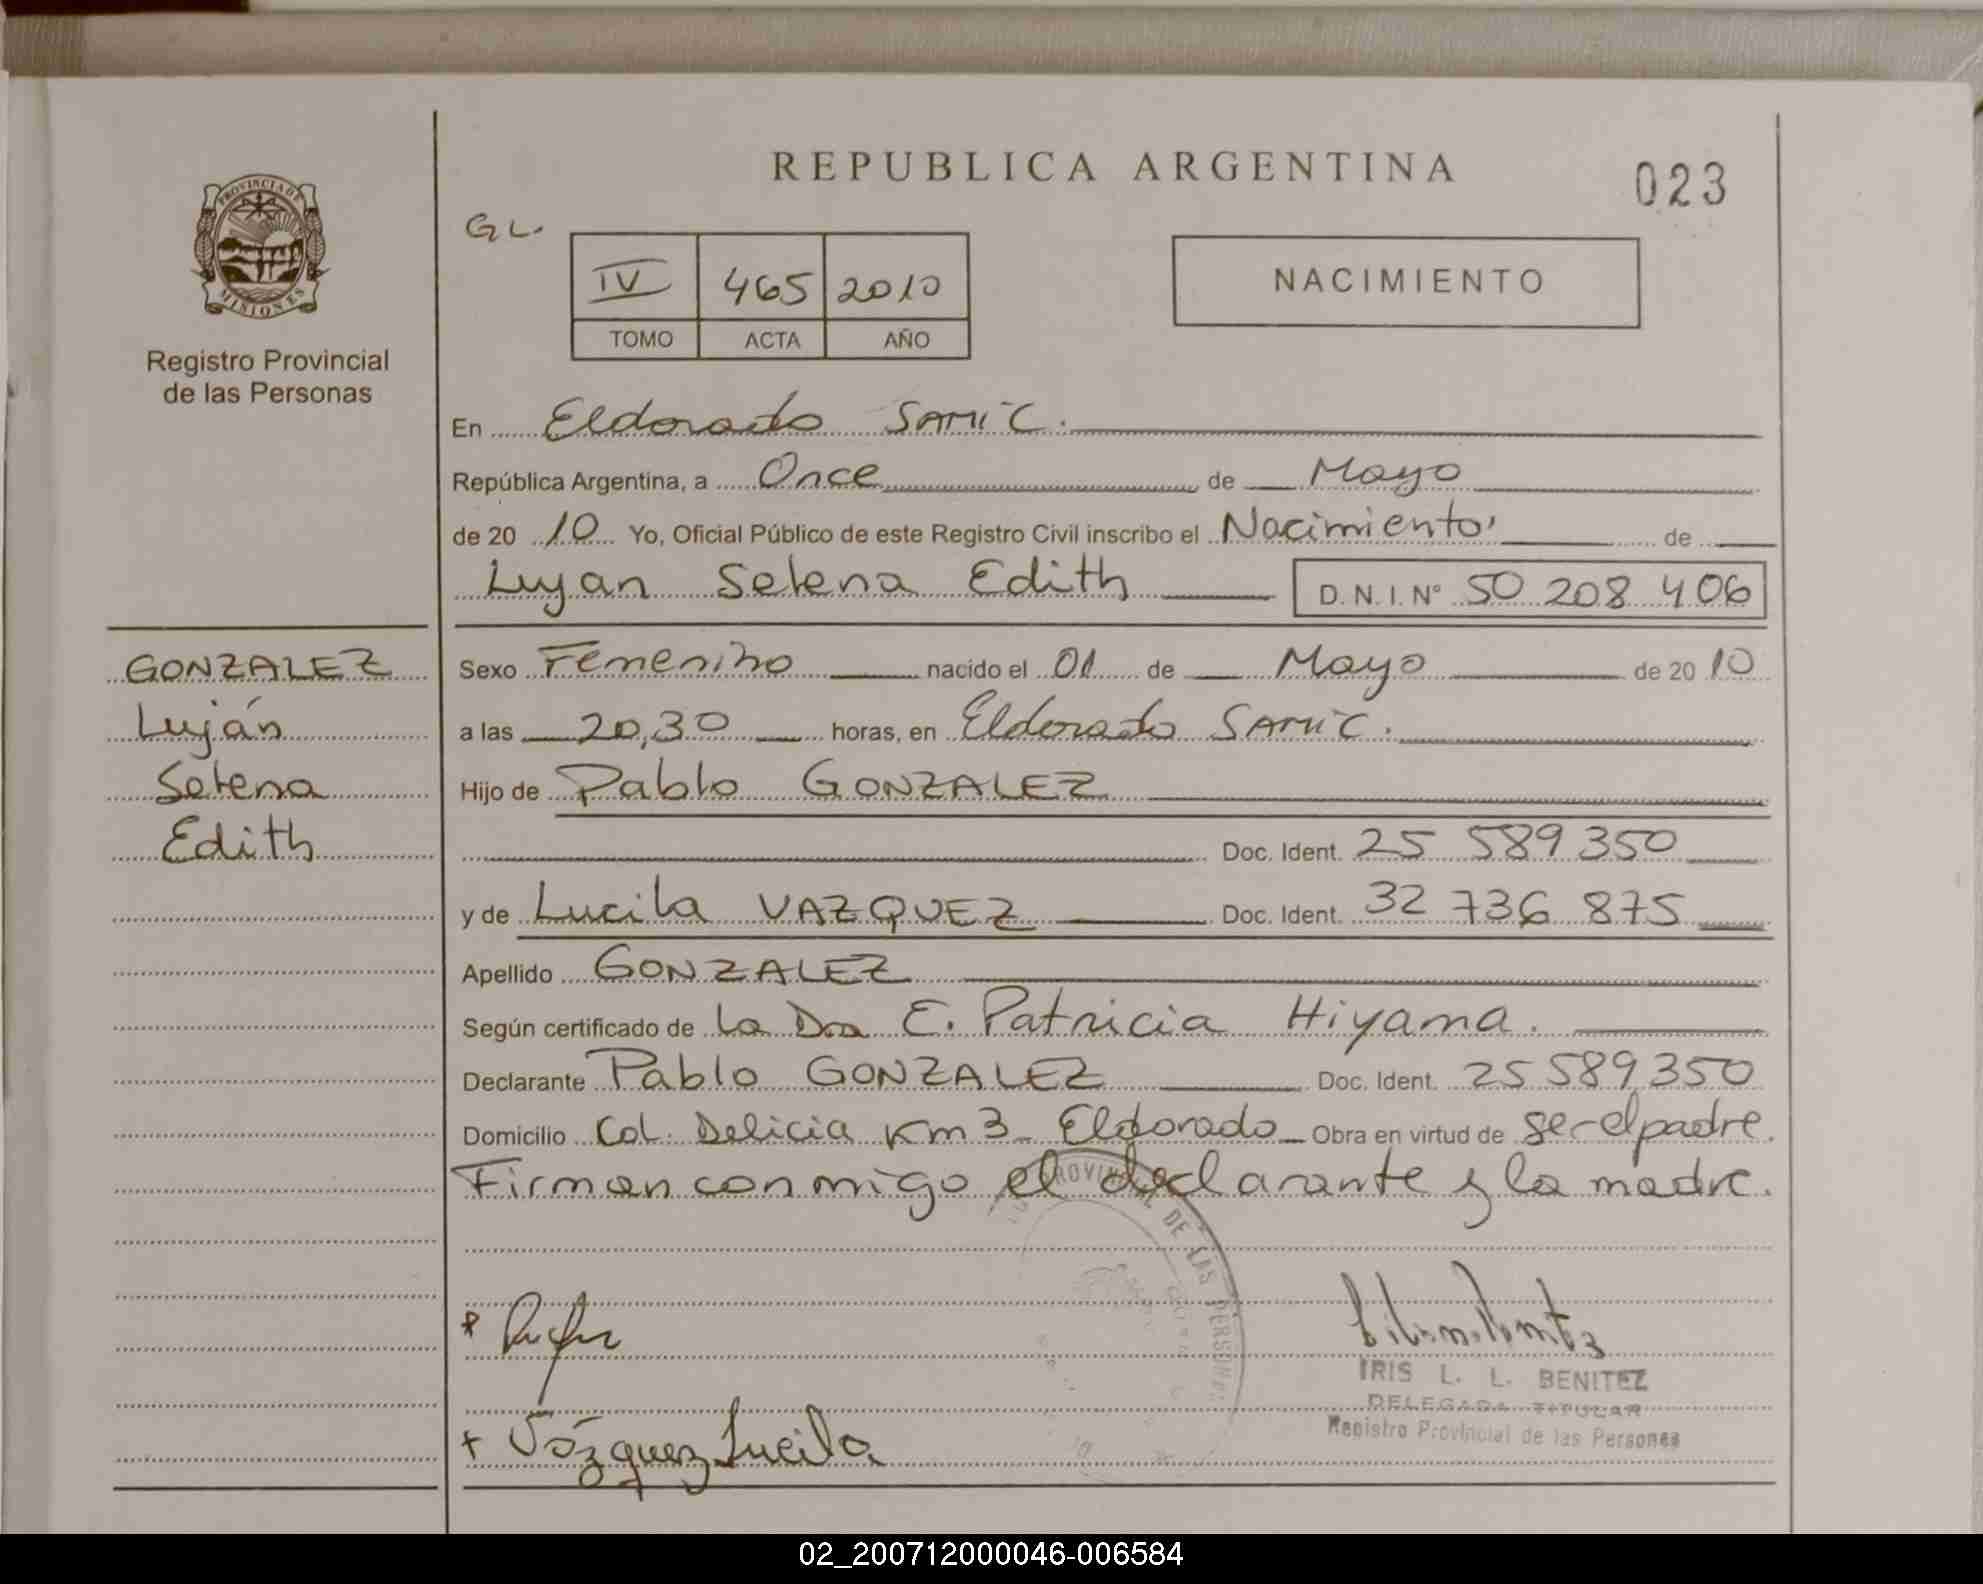 REPUBLICA ARGENTINA
023
PROVINCIA DE
MISIONES
Registro Provincial
de las Personas
GL.
IV 465 2010
TOMO ACTA AÑO
NACIMIENTO
En Eldorado SAMIC.
República Argentina, a Once de Mayo
de 20 10 Yo, Oficial Público de este Registro Civil inscribo el Nacimiento de
Lujan Selena Edith D.N.I. Nº 50 208 406
GONZALEZ
Luján
Selena
Edith
Sexo Femenino nacido el 01 de Mayo de 20 10
a las 20,30 horas, en Eldorado SAMIC.
Hijo de Pablo GONZALEZ
Doc. Ident. 25 589 350
y de Lucila VAZQUEZ Doc. Ident. 32 736 875
Apellido GONZALEZ
Según certificado de la Dra E. Patricia Hiyama.
Declarante Pablo GONZALEZ Doc. Ident. 25 589 350
Domicilio Col. Delicia Km 3 Eldorado Obra en virtud de ser el padre.
Firman conmigo el declarante y la madre.
PROVINCIAL DE LAS PERSONAS
+ Vázquez Lucila
IRIS L. L. BENITEZ
DELEGADA TITULAR
Registro Provincial de las Personas
02_200712000046-006584